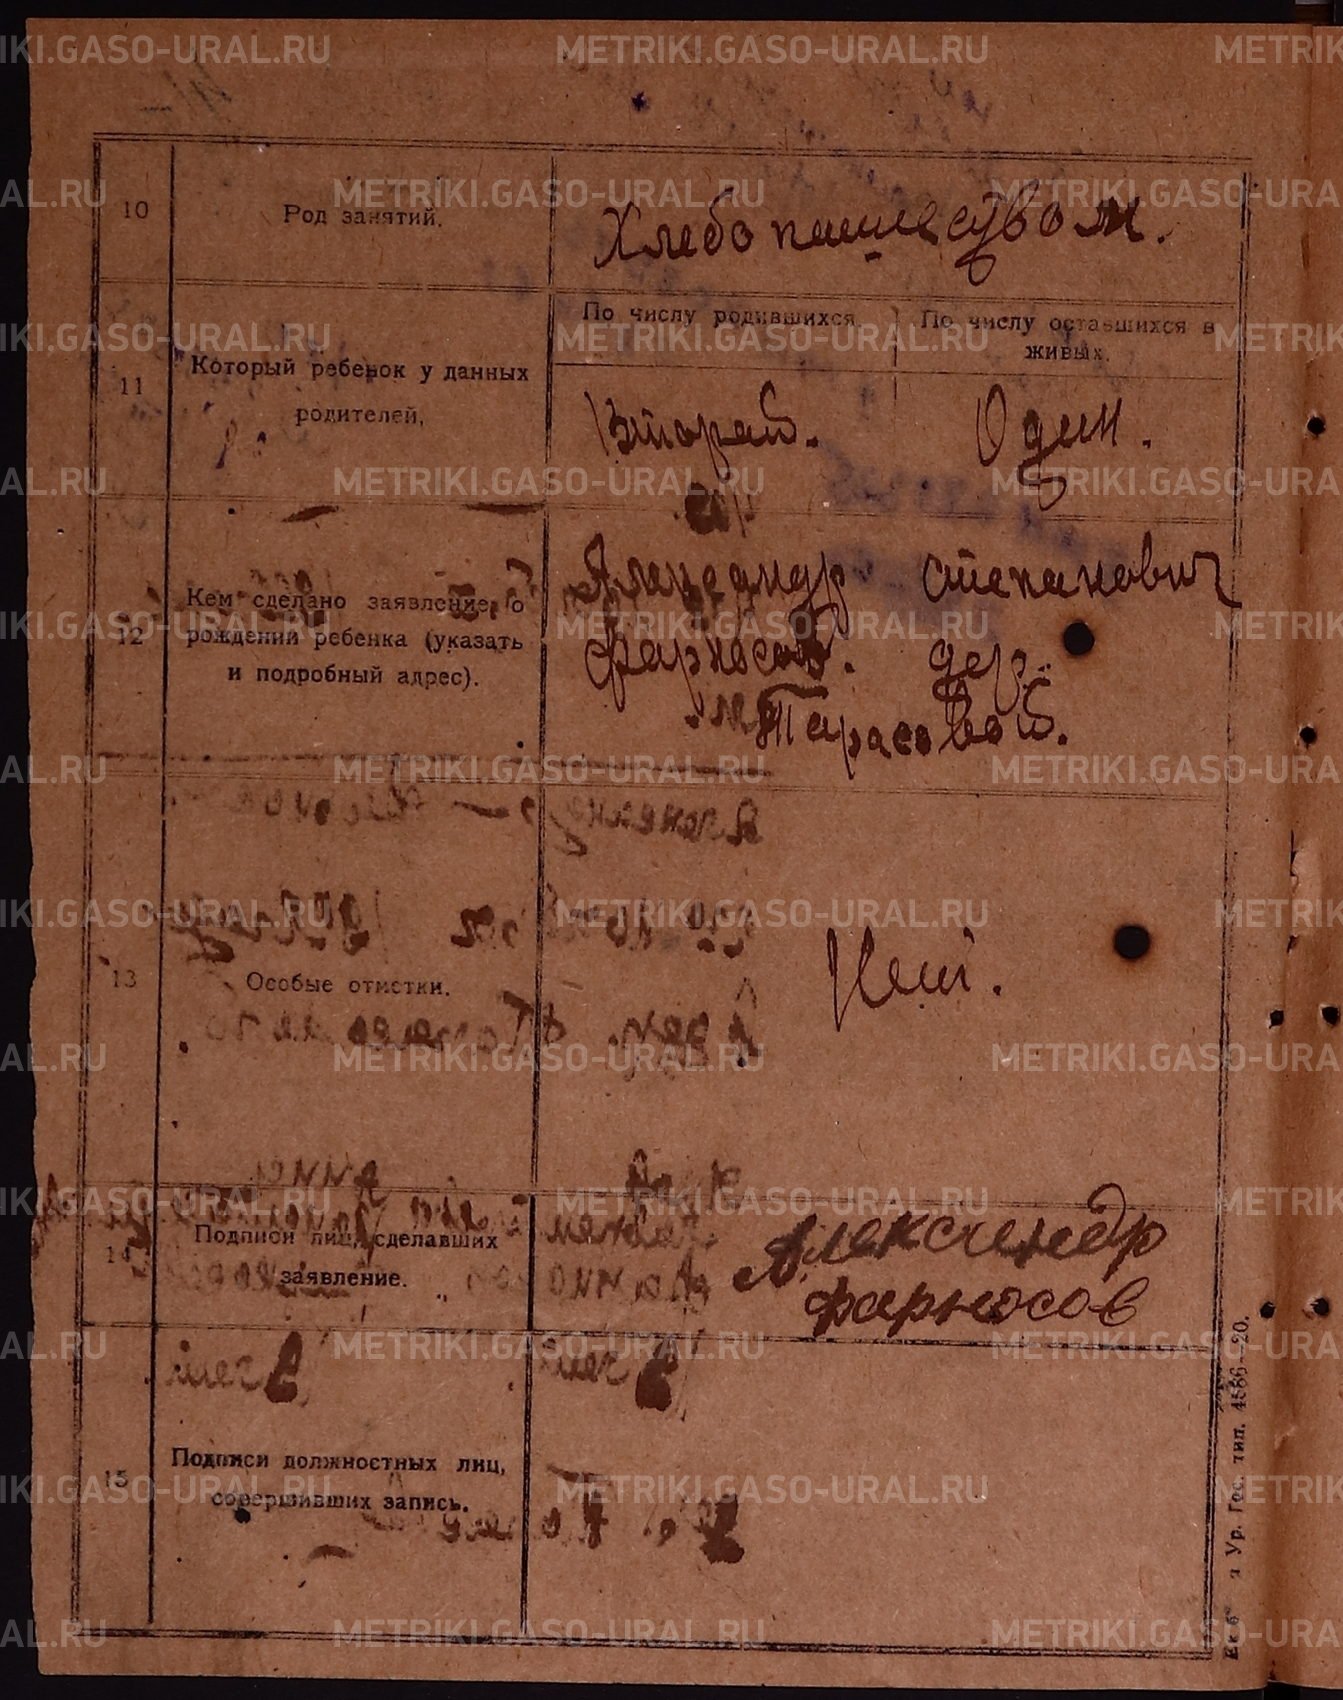 METRIKI.GASO-URAL.RU
10
Род занятий.
Хлебопашеством.
11
Который ребенок у данных
родителей.
По числу родившихся.
По числу оставшихся в
живых.
Второй.
Один.
12
Кем сделано заявление о
рождении ребенка (указать
и подробный адрес).
Александр Степанович
Фарносов. дер.
Тарасовой.
13
Особые отметки.
Нет.
14
Подписи лиц, сделавших
заявление.
Александр
Фарносов
15
Подписи должностных лиц,
совершивших запись.
Ур. Гос. тип. 4586—20.